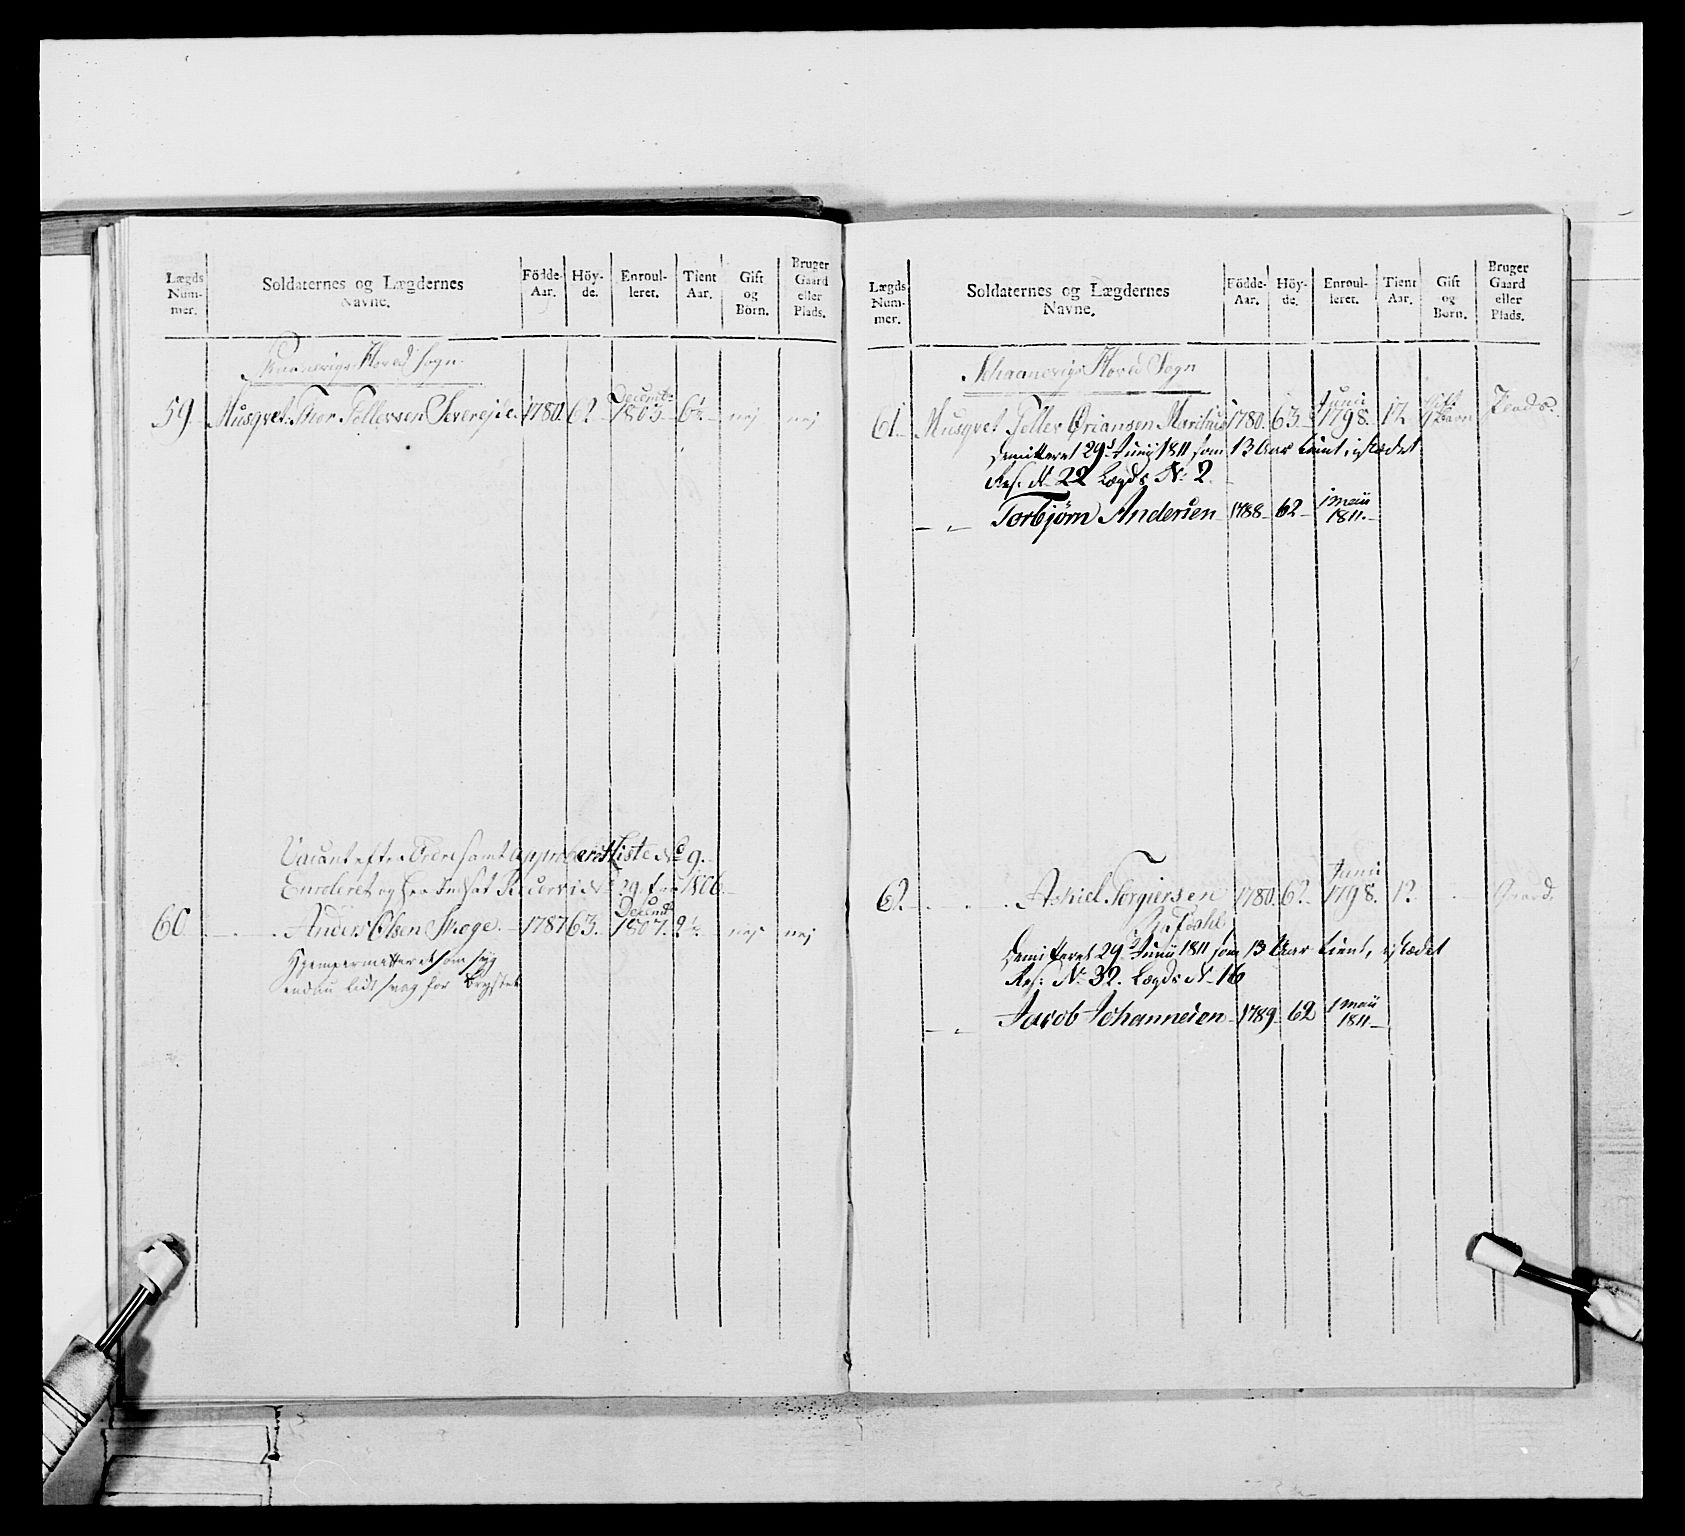 Lægds Num-mer.
Soldaternes og Lægdernes Navne.
Födde-Aar.
Höy-de.
Enroul-leret.
Tient Aar.
Gift og Börn.
Bruger Gaard eller Plads.
Hoved Sogn
59 Musqvet. Thor Tellevsen 1780. 62. Decemb. 1803. 6½ nej nej
Vacant efter samt Approberet Liste No 9.
Enrolleret No 29. for 1806
60 Anders Olsen 1787 63. Decemb. 1807. 2½ nej nej
som syg
endnu lidt svag for Brystet
Lægds Num-mer.
Soldaternes og Lægdernes Navne.
Födde-Aar.
Höy-de.
Enroul-leret.
Tient Aar.
Gift og Börn.
Bruger Gaard eller Plads.
Hoved Sogn
61. Musqvet Tellev Ørjansen 1780. 63. Junii 1798. 12 Gift 1 Barn Plads.
Demitteret 29de Junij 1811 som 13 Aar tient, istædet
Res. No 22 Lægds No 2.
Torbjørn Andersen 1788 62 1 Maii 1811.
62. Torgiersen 1780. 62 Junii 1798. 12 Gaard.
Demitteret 29 Junii 1811 som 13 Aar tient, istædet
Res: No 32. Lægds No 16
Jacob Johannesen 1789 62 1 Maii 1811